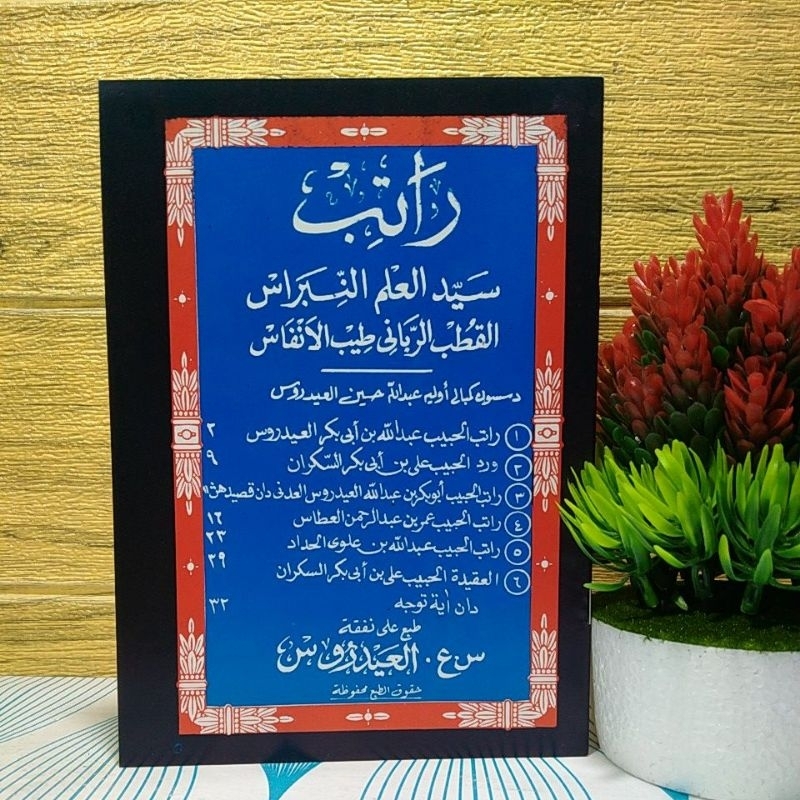 رَاتِبْ
سَيّد العلم النِّبرَاس
القُطب الرّبّاني طِيبْ الأنفَاس
دسسون كمبالي أوليه عبدالله حسين العيدروس
١ راتب الحبيب عبدالله بن أبي بكر العيدروس ٢
٢ ورد الحبيب علي بن أبي بكر السّكران ٩
٣ راتب الحبيب أبوبكر بن عبدالله العيدروس العدني دان قصيدهث ١١
٤ راتب الحبيب عمر بن عبدالرحمن العطاس ١٦
٥ راتب الحبيب عبدالله بن علوي الحداد ٢٣
٦ العقيدة الحبيب علي بن أبي بكر السكران ٢٩
دان اية توجه ٣٢
طبع على نفقة
س.ع. العيدروس
حقوق الطبع محفوظة